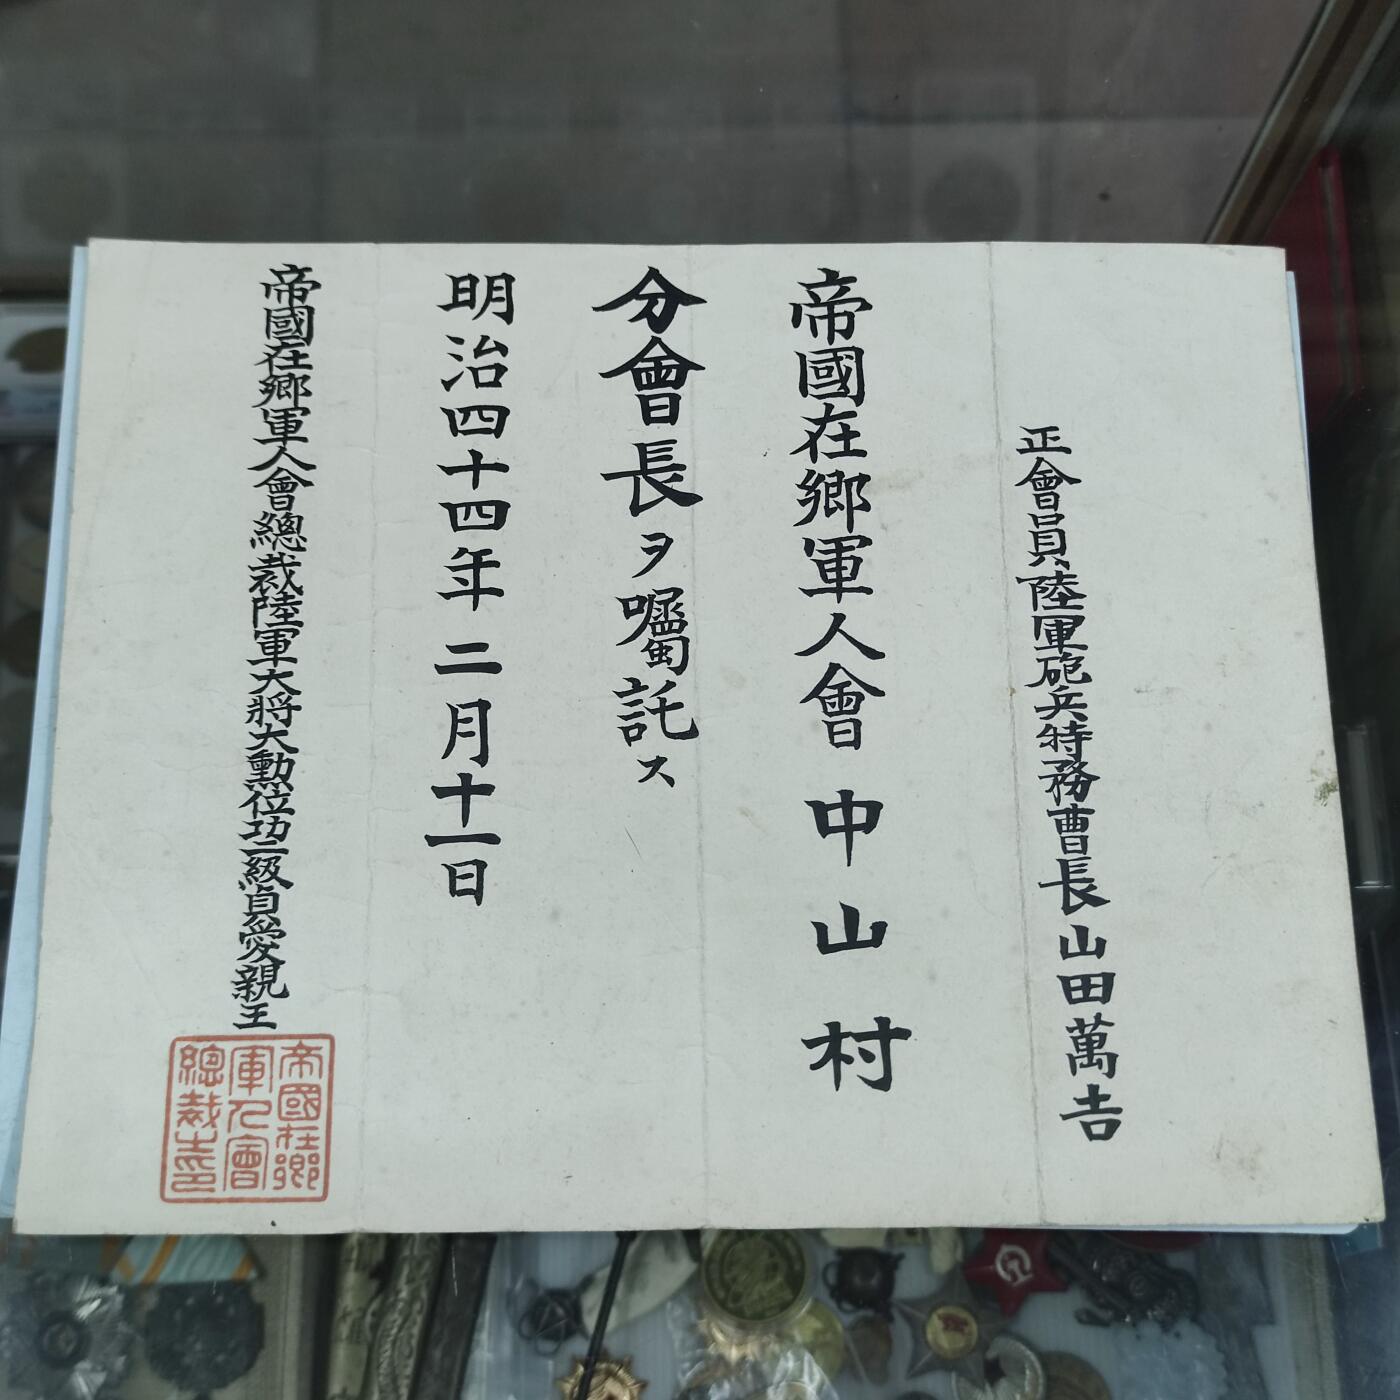 正會員陸軍砲兵特務曹長山田萬吉
帝國在鄉軍人會中山村
分會長ヲ囑託ス
明治四十四年二月十一日
帝國在鄉軍人會總裁陸軍大將大勲位功二級貞愛親王
帝國在鄉
軍人會
總裁之印